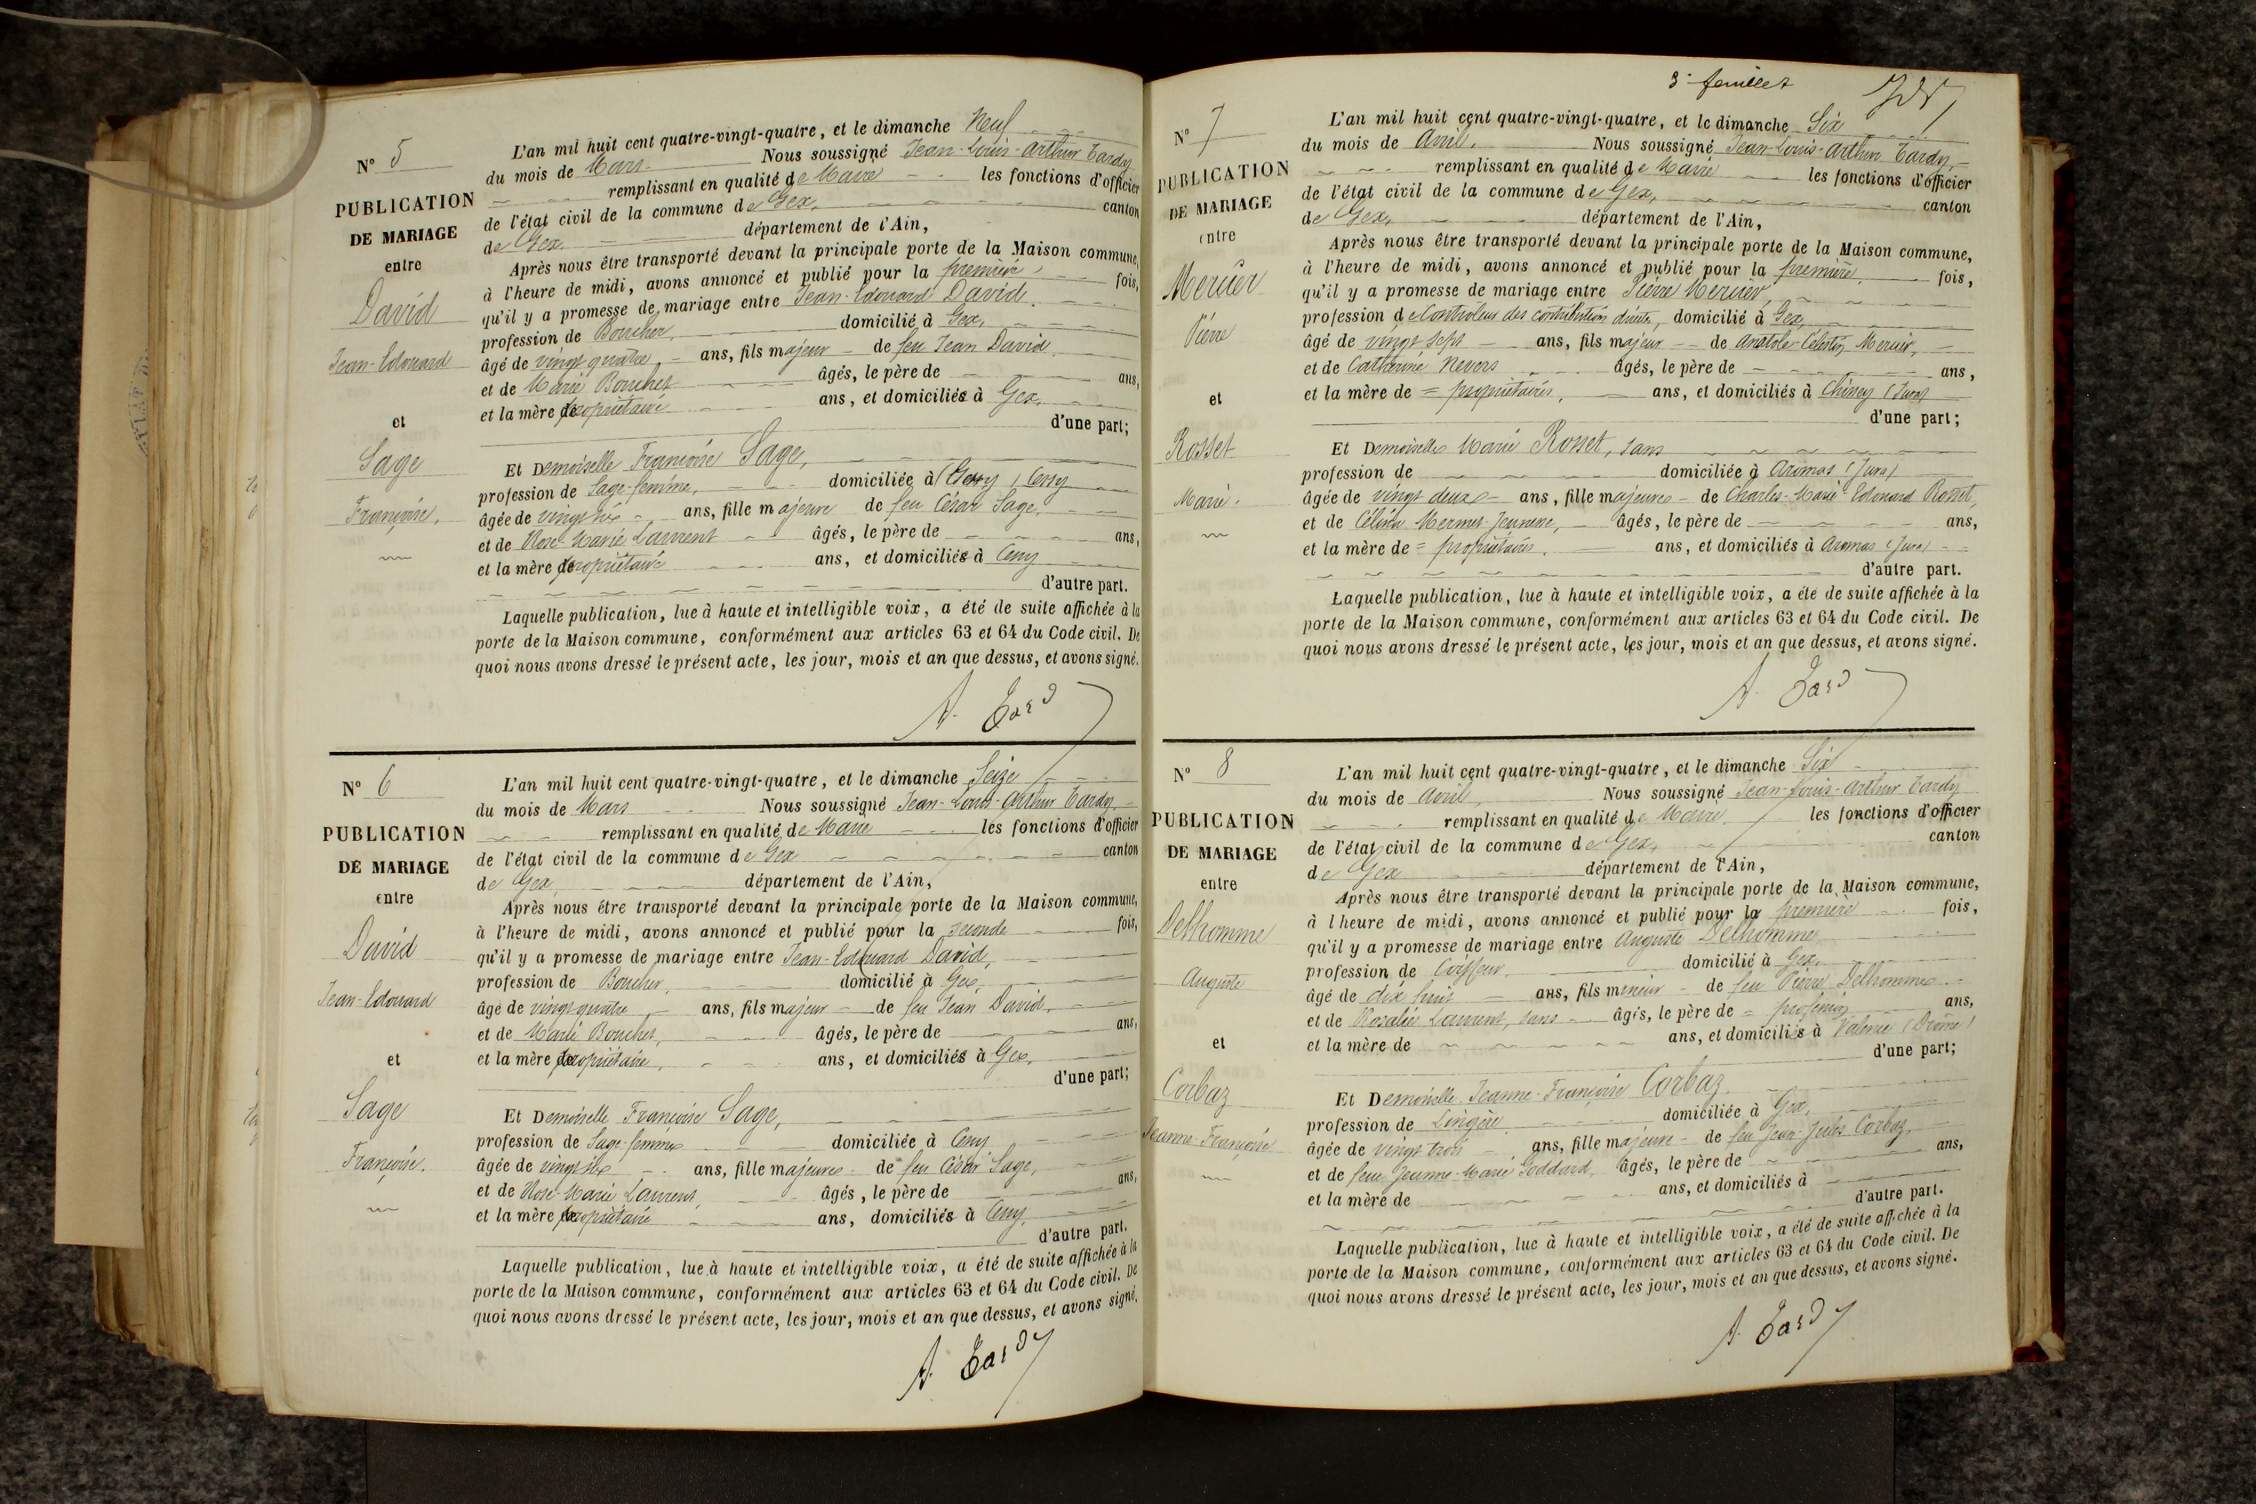 N° 5
PUBLICATION
DE MARIAGE
entre
David
Jean-Edouard
et
Sage
Françoise.
L'an mil huit cent quatre-vingt-quatre, et le dimanche Neuf
du mois de Mars Nous soussigné Jean-Louis-Arthur Tardy
remplissant en qualité de Maire les fonctions d'officier
de l'état civil de la commune de Gex, canton
de Gex département de l'Ain,
Après nous être transporté devant la principale porte de la Maison commune,
à l'heure de midi, avons annoncé et publié pour la première fois,
qu'il y a promesse de mariage entre Jean-Edouard David,
profession de Boucher, domicilié à Gex,
âgé de vingt quatre, ans, fils majeur de feu Jean David,
et de Marie Bouchet âgés, le père de ans,
et la mère propriétaire ans, et domiciliés à Gex,
d'une part;
Et Demoiselle Françoise Sage,
profession de Sage-femme, domiciliée à Cessy
âgée de vingt six ans, fille majeure de feu César Sage,
et de Rose-Marie Laurent âgés, le père de ans,
et la mère propriétaire ans, et domiciliés à Cessy
d'autre part.
Laquelle publication, lue à haute et intelligible voix, a été de suite affichée à la
porte de la Maison commune, conformément aux articles 63 et 64 du Code civil. De
quoi nous avons dressé le présent acte, les jour, mois et an que dessus, et avons signé.
A. Tardy
N° 6
PUBLICATION
DE MARIAGE
entre
David
Jean-Edouard
et
Sage
Françoise.
L'an mil huit cent quatre-vingt-quatre, et le dimanche Seize
du mois de Mars Nous soussigné Jean-Louis-Arthur Tardy,
remplissant en qualité de Maire les fonctions d'officier
de l'état civil de la commune de Gex canton
de Gex, département de l'Ain,
Après nous être transporté devant la principale porte de la Maison commune,
à l'heure de midi, avons annoncé et publié pour la seconde fois,
qu'il y a promesse de mariage entre Jean-Edouard David,
profession de Boucher, domicilié à Gex,
âgé de vingt quatre ans, fils majeur de feu Jean David,
et de Marie Bouchet, âgés, le père de ans,
et la mère propriétaire, ans, et domiciliés à Gex,
d'une part;
Et Demoiselle Françoise Sage,
profession de Sage-femme domiciliée à Cessy
âgée de vingt six ans, fille majeure de feu César Sage,
et de Rose-Marie Laurent, âgés, le père de ans,
et la mère propriétaire ans, domiciliés à Cessy,
d'autre part.
Laquelle publication, lue à haute et intelligible voix, a été de suite affichée à la
porte de la Maison commune, conformément aux articles 63 et 64 du Code civil. De
quoi nous avons dressé le présent acte, les jour, mois et an que dessus, et avons signé.
A. Tardy
3e feuillet
N° 7
PUBLICATION
DE MARIAGE
entre
Mercier
Pierre
et
Rosset
Marie.
L'an mil huit cent quatre-vingt-quatre, et le dimanche Six
du mois de Avril, Nous soussigné Jean-Louis-Arthur Tardy,
remplissant en qualité de Maire les fonctions d'officier
de l'état civil de la commune de Gex, canton
de Gex, département de l'Ain,
Après nous être transporté devant la principale porte de la Maison commune,
à l'heure de midi, avons annoncé et publié pour la première, fois,
qu'il y a promesse de mariage entre Pierre Mercier,
profession de Controleur des contributions directes, domicilié à Gex,
âgé de vingt sept ans, fils majeur de Anatole-Célestin Mercier,
et de Catherine Nevers âgés, le père de ans,
et la mère de = propriétaires, ans, et domiciliés à Chissey (Jura)
d'une part;
Et Demoiselle Marie Rosset, sans
profession de domiciliée à Aromas (Jura)
âgée de vingt deux ans, fille majeure de Charles-Marie-Edouard Rosset,
et de Célina Mermet-Jeunesse, âgés, le père de ans,
et la mère de = propriétaires. ans, et domiciliés à Aromas (Jura)
d'autre part.
Laquelle publication, lue à haute et intelligible voix, a été de suite affichée à la
porte de la Maison commune, conformément aux articles 63 et 64 du Code civil. De
quoi nous avons dressé le présent acte, les jour, mois et an que dessus, et avons signé.
A. Tardy
N° 8
PUBLICATION
DE MARIAGE
entre
Delhomme
Auguste
et
Corbaz
Jeanne-Françoise
L'an mil huit cent quatre-vingt-quatre, et le dimanche Six
du mois de Avril, Nous soussigné Jean-Louis-Arthur Tardy
remplissant en qualité de Maire, les fonctions d'officier
de l'état civil de la commune de Gex, canton
de Gex département de l'Ain,
Après nous être transporté devant la principale porte de la Maison commune,
à l'heure de midi, avons annoncé et publié pour la première fois,
qu'il y a promesse de mariage entre Auguste Delhomme
profession de Coiffeur, domicilié à Gex,
âgé de dix huit ans, fils mineur de feu Pierre Delhomme
et de Rosalie Laurent, sans âgés, le père de = profession ans,
et la mère de ans, et domiciliés à Valence (Drôme)
d'une part;
Et Demoiselle Jeanne-Françoise Corbaz
profession de Lingère domiciliée à Gex,
âgée de vingt trois ans, fille majeure de feu Jean-Jules Corbaz,
et de feue Jeanne-Marie Goddard, âgés, le père de ans,
et la mère de ans, et domiciliés à
d'autre part.
Laquelle publication, lue à haute et intelligible voix, a été de suite affichée à la
porte de la Maison commune, conformément aux articles 63 et 64 du Code civil. De
quoi nous avons dressé le présent acte, les jour, mois et an que dessus, et avons signé.
A. Tardy